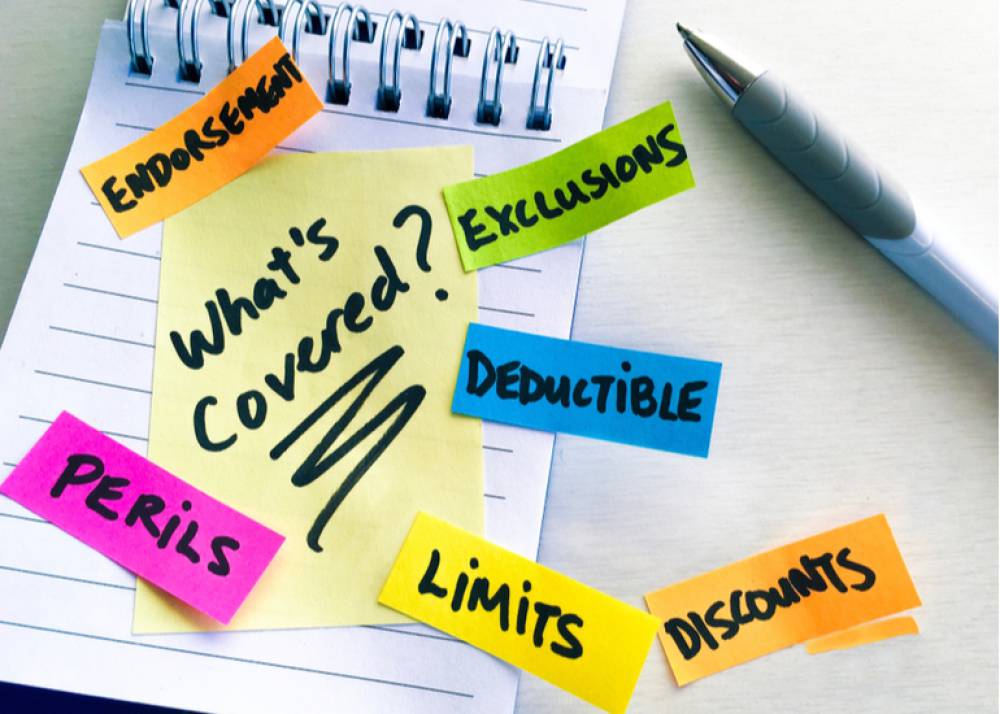 ENDORSEMENT
EXCLUSIONS
What's
Covered?
DEDUCTiBLE
PERiLS
LiMiTS
DISCOUNTS